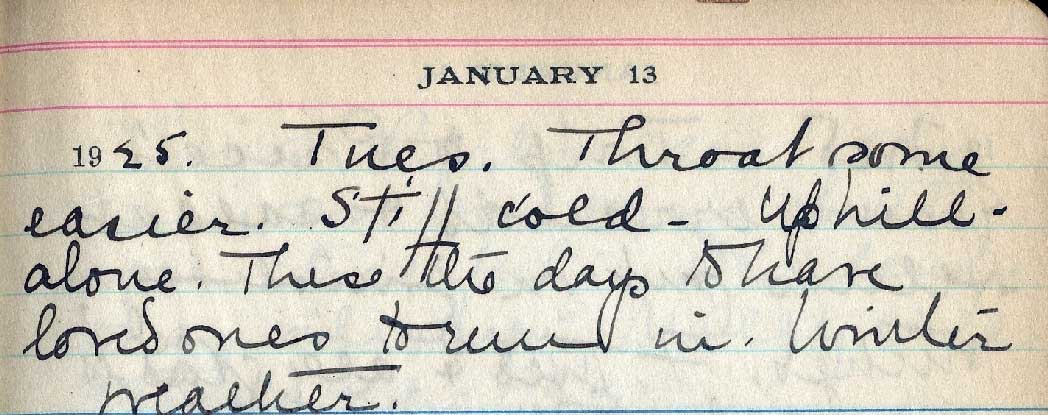 JANUARY 13
1925. Tues. Throat some
easier. Still cold - Uphill -
alone. These the days to have
loved ones to run in. Winter
weather.